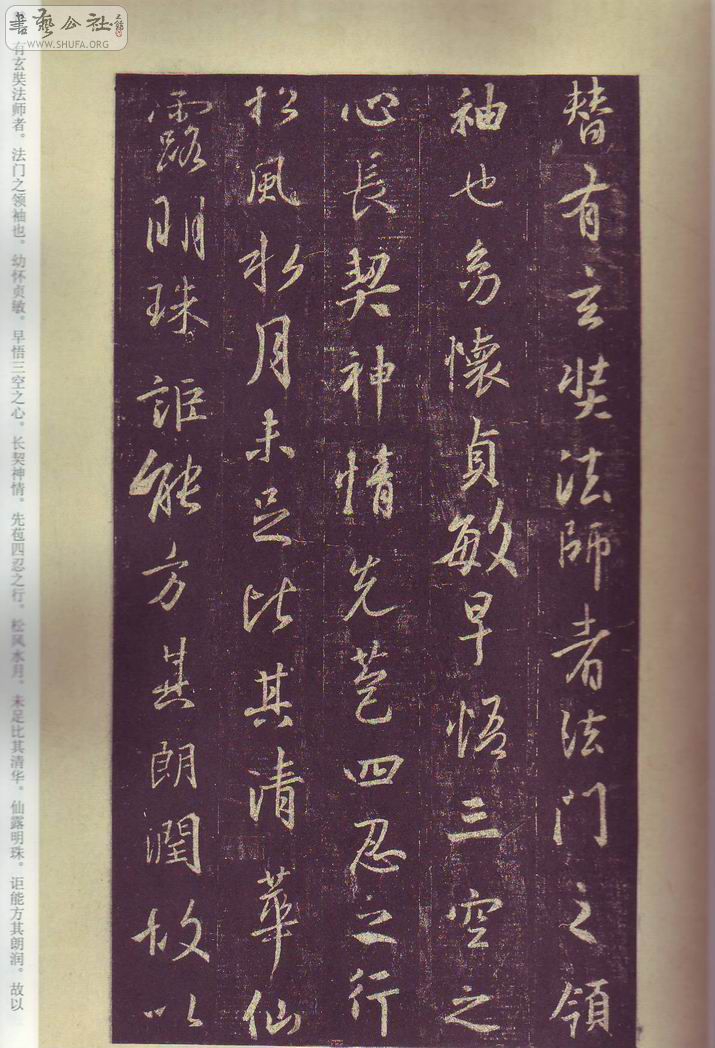 替有玄奘法師者法門之領
袖也㓜懷貞敏早悟三空之
心長契神情先苞四忍之行
松風水月未足比其清華仙
露明珠詎能方其朗潤故以
有玄奘法师者。法门之领袖也。幼怀贞敏。早悟三空之心。长契神情。先苞四忍之行。松风水月。未足比其清华。仙露明珠。讵能方其朗润。故以
書藝公社
WWW.SHUFA.ORG